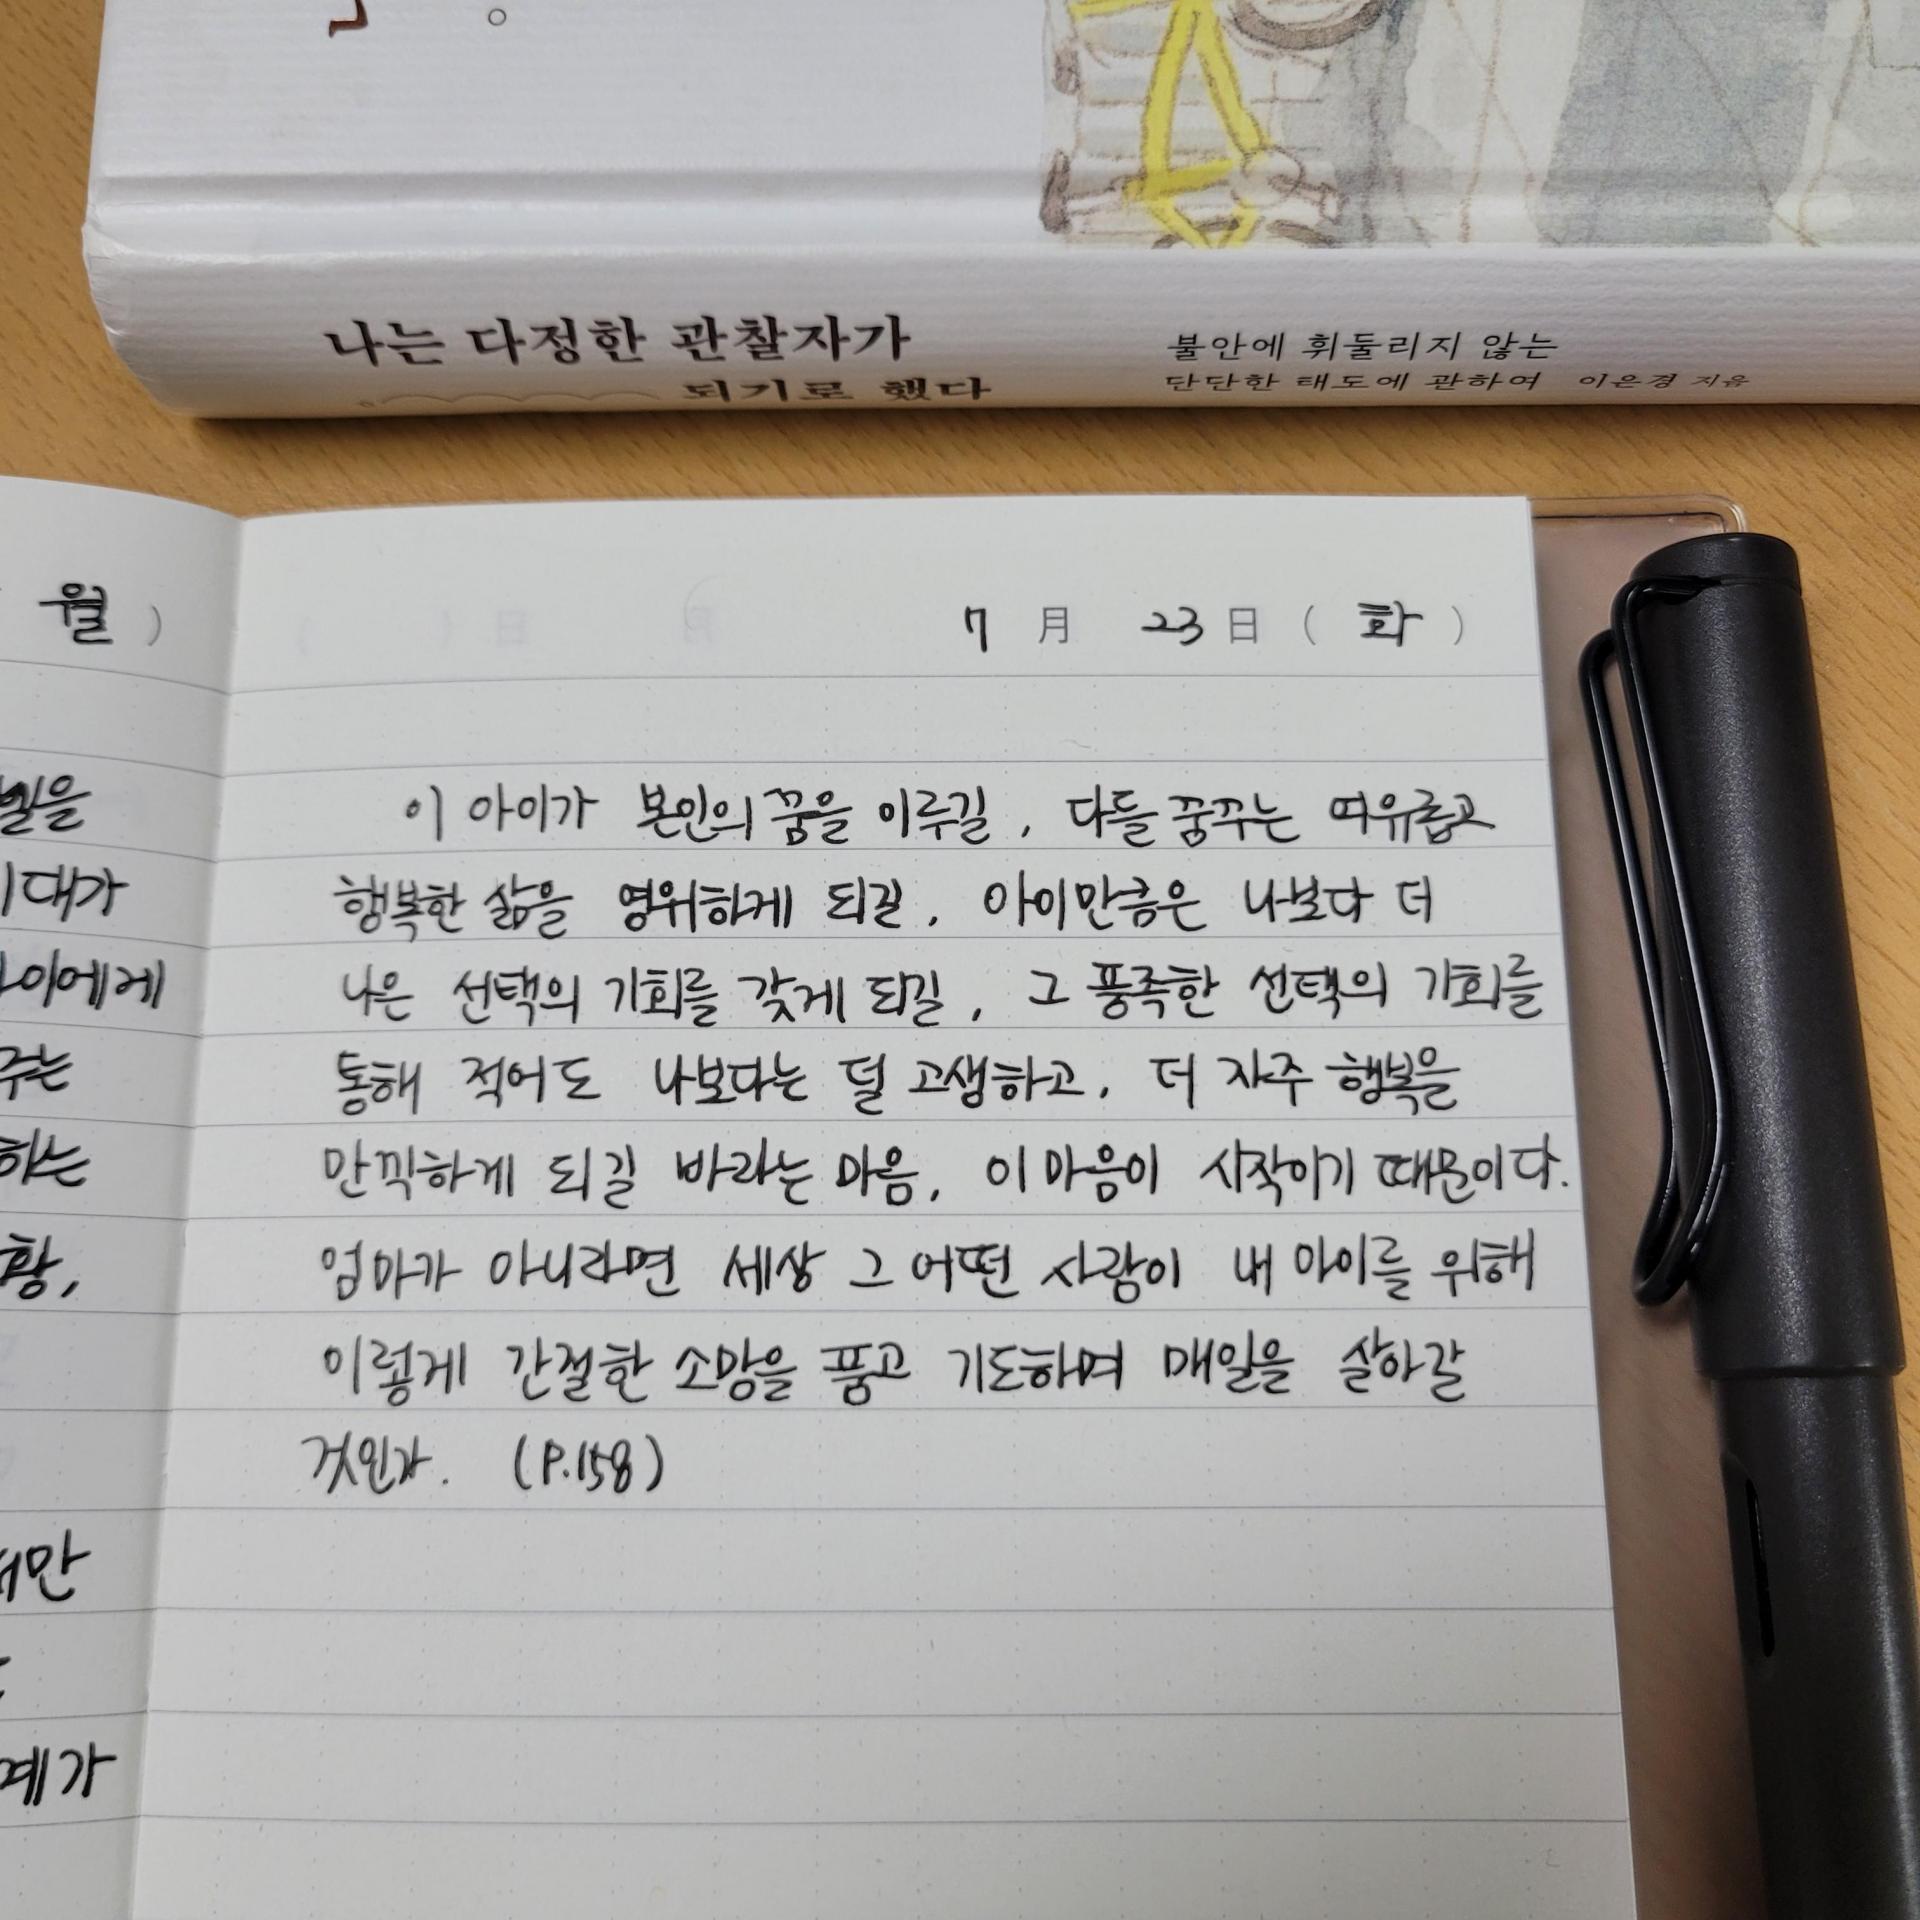 나는 다정한 관찰자가
되기로 했다
불안에 휘둘리지 않는
단단한 태도에 관하여 이은경 지음
월 )
7 月 23 日 ( 화 )
이 아이가 본인의 꿈을 이루길, 다들 꿈꾸는 여유롭고
행복한 삶을 영위하게 되길, 아이만큼은 나보다 더
나은 선택의 기회를 갖게 되길, 그 풍족한 선택의 기회를
통해 적어도 나보다는 덜 고생하고, 더 자주 행복을
만끽하게 되길 바라는 마음, 이 마음이 시작이기 때문이다.
엄마가 아니라면 세상 그 어떤 사람이 내 아이를 위해
이렇게 간절한 소망을 품고 기도하며 매일을 살아갈
것인가. (P.158)